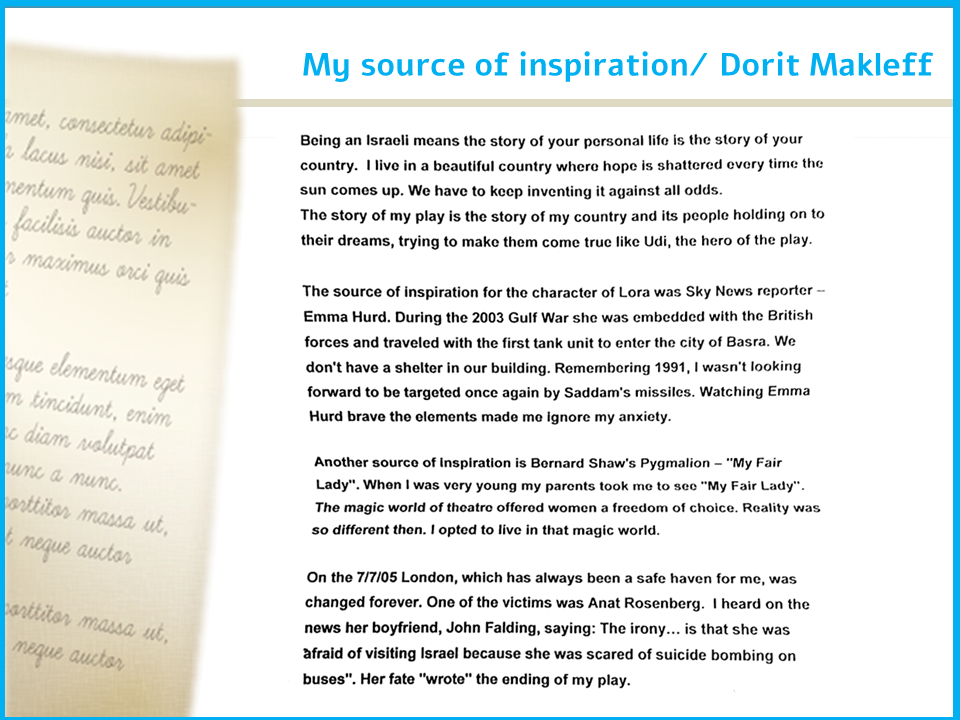 My source of inspiration/ Dorit Makleff
amet, consectetur adipi-
lacus nisi, sit amet
mentum quis. Vestibu-
facilisis auctor in
maximus orci quis
sque elementum eget
m tincidunt, enim
nc diam volutpat
nunc a nunc.
porttitor massa ut,
t neque auctor
porttitor massa ut,
neque auctor
Being an Israeli means the story of your personal life is the story of your
country. I live in a beautiful country where hope is shattered every time the
sun comes up. We have to keep inventing it against all odds.
The story of my play is the story of my country and its people holding on to
their dreams, trying to make them come true like Udi, the hero of the play.
The source of inspiration for the character of Lora was Sky News reporter –
Emma Hurd. During the 2003 Gulf War she was embedded with the British
forces and traveled with the first tank unit to enter the city of Basra. We
don't have a shelter in our building. Remembering 1991, I wasn't looking
forward to be targeted once again by Saddam's missiles. Watching Emma
Hurd brave the elements made me ignore my anxiety.
Another source of Inspiration is Bernard Shaw's Pygmalion – "My Fair
Lady". When I was very young my parents took me to see "My Fair Lady".
The magic world of theatre offered women a freedom of choice. Reality was
so different then. I opted to live in that magic world.
On the 7/7/05 London, which has always been a safe haven for me, was
changed forever. One of the victims was Anat Rosenberg. I heard on the
news her boyfriend, John Falding, saying: The irony... is that she was
afraid of visiting Israel because she was scared of suicide bombing on
buses". Her fate "wrote" the ending of my play.